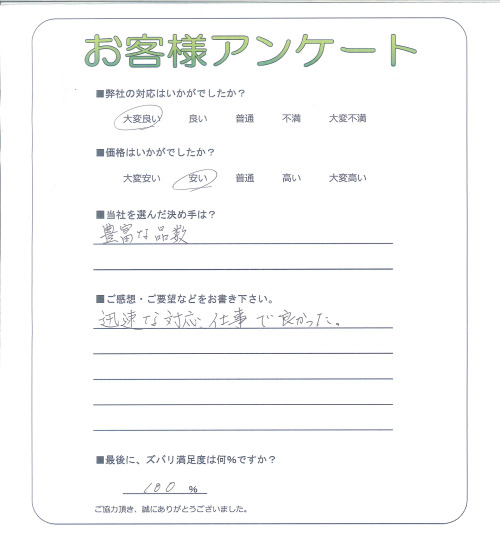 お客様アンケート
■弊社の対応はいかがでしたか？
大変良い 良い 普通 不満 大変不満
■価格はいかがでしたか？
大変安い 安い 普通 高い 大変高い
■当社を選んだ決め手は？
豊富な品数
■ご感想・ご要望などをお書き下さい。
迅速な対応、仕事で良かった。
■最後に、ズバリ満足度は何%ですか？
100 %
ご協力頂き、誠にありがとうございました。